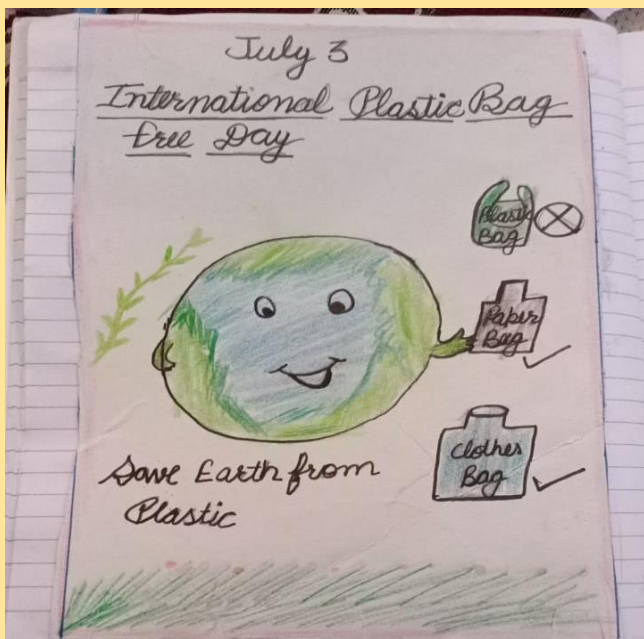 July 3
International Plastic Bag
free Day
Plastic
Bag
Paper
Bag
Clothes
Bag
Save Earth from
Plastic